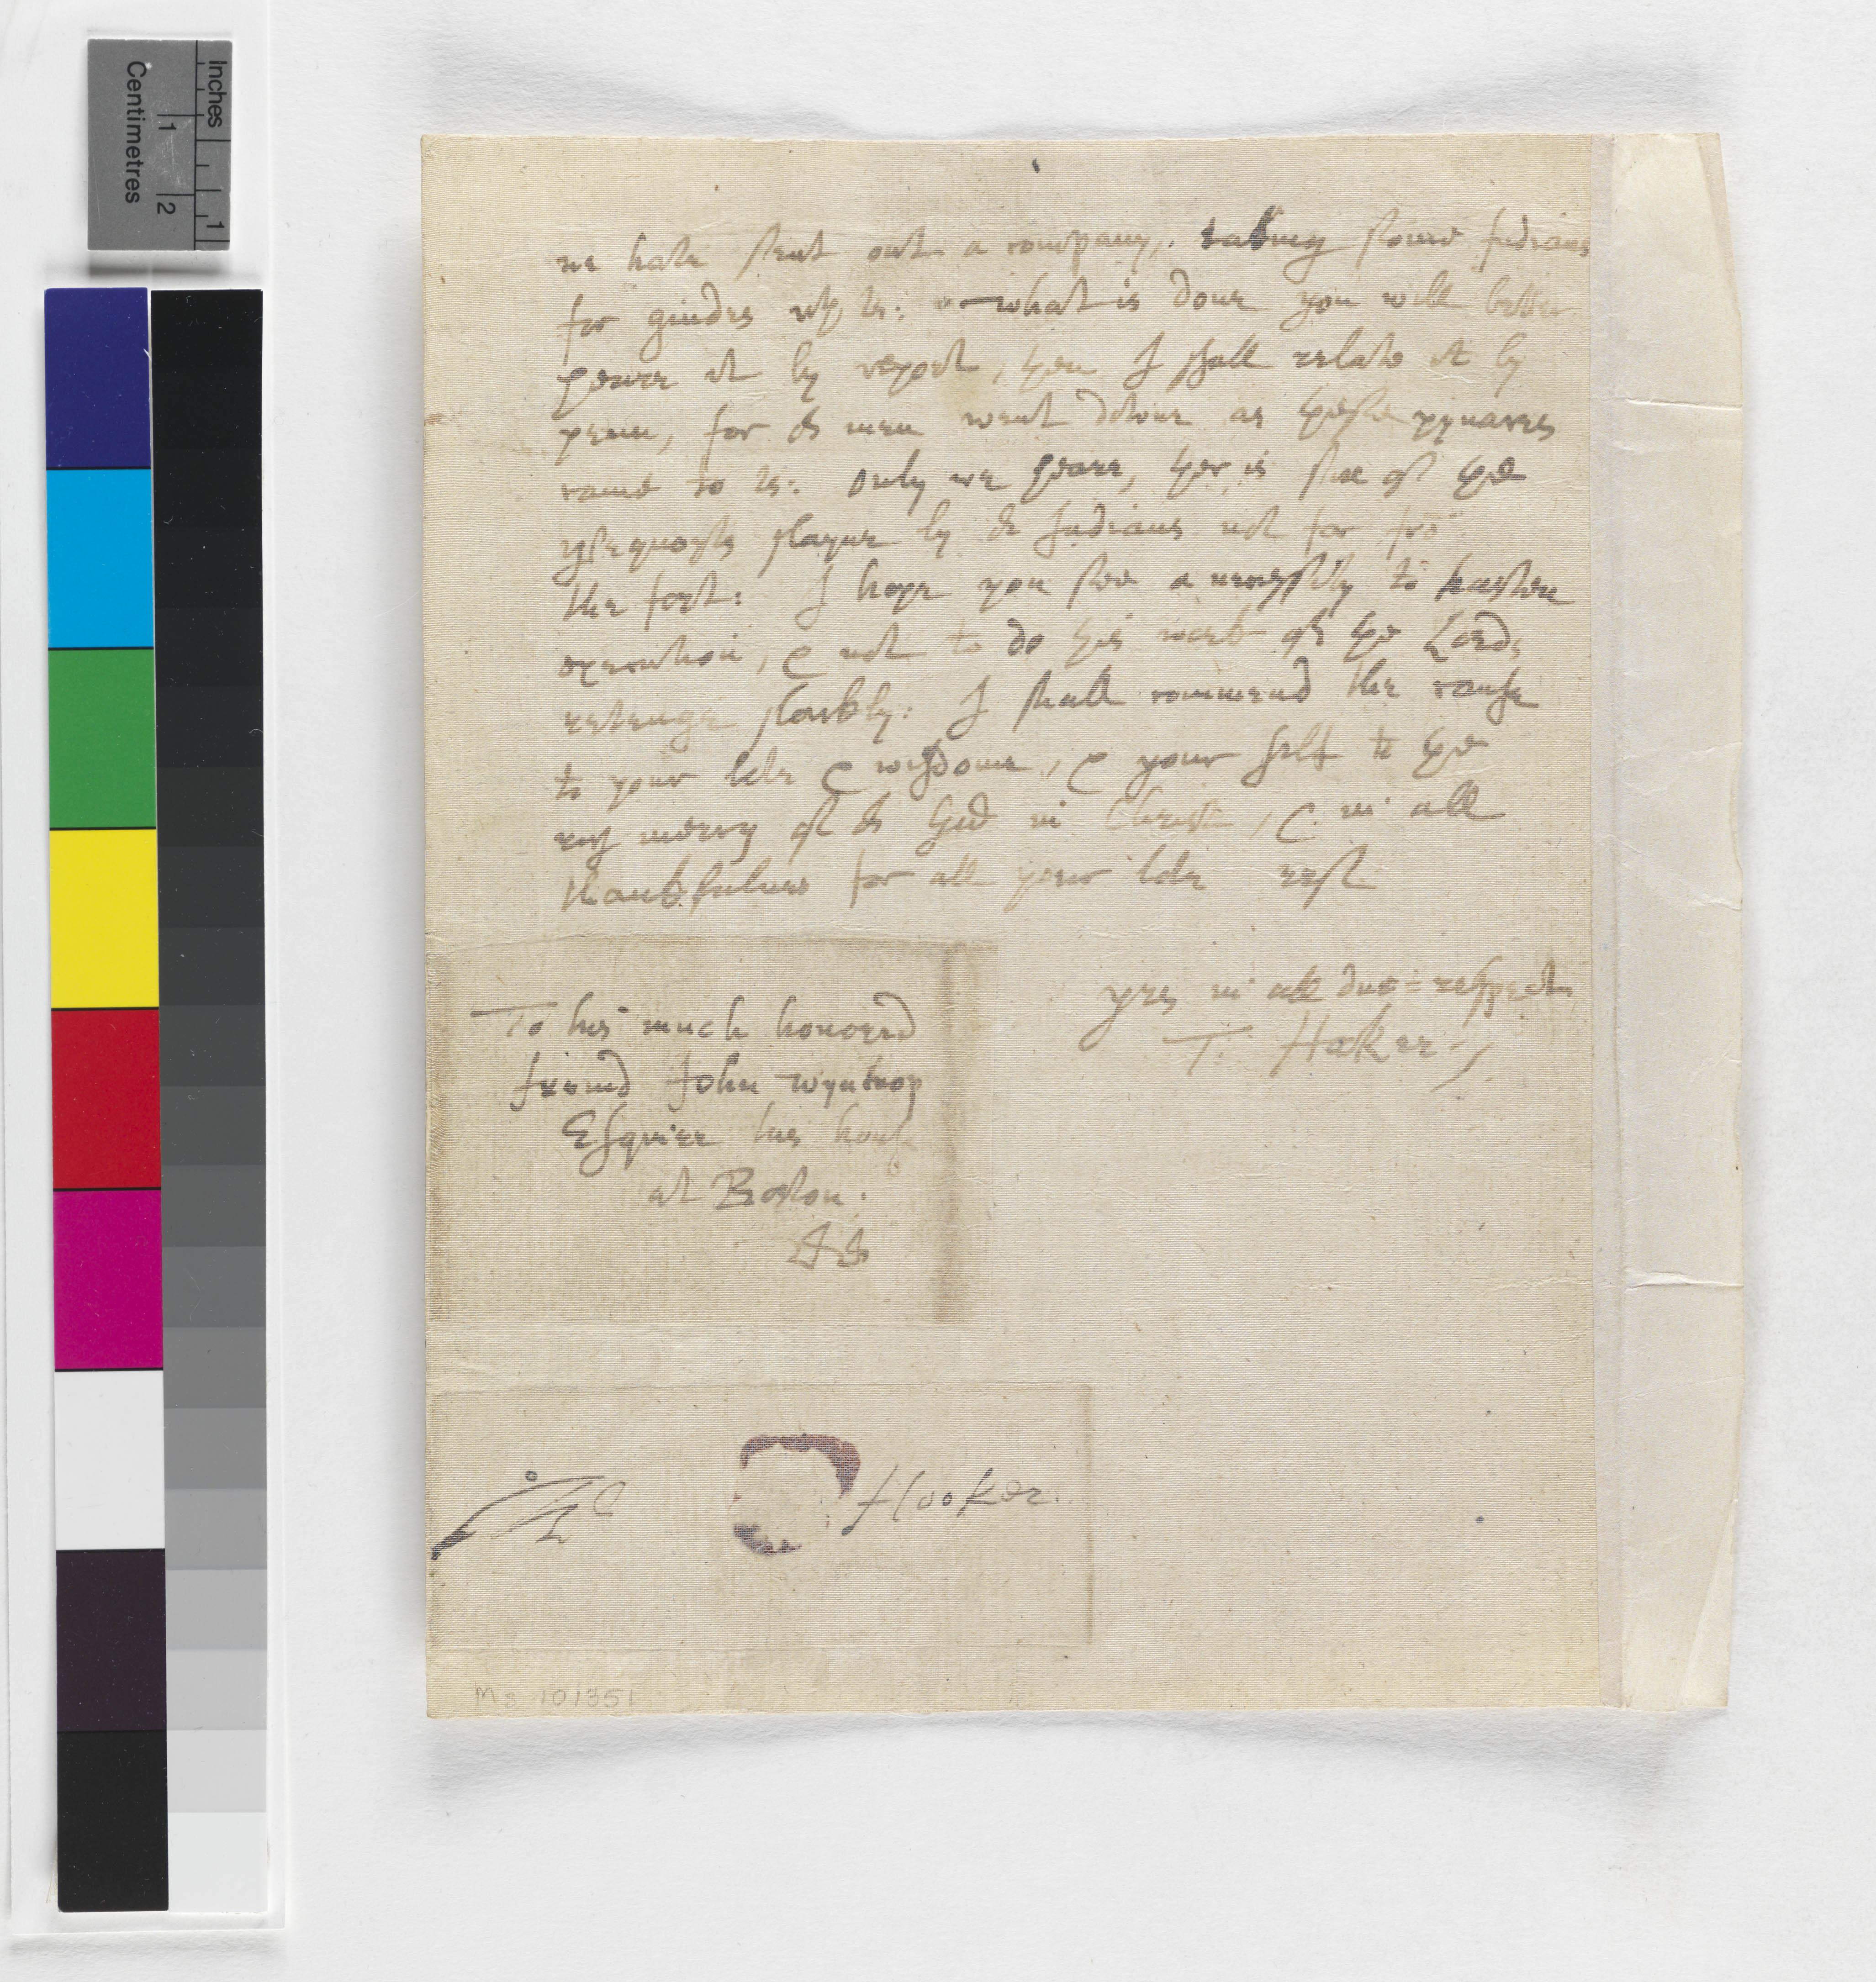 Inches
1
Centimetres
1 2
we have sent out a company, taking some Indians
for guides wth us: what is done you will better
heare it by report, then I shall relate it by
penn, for or men went downe as these pynaces
came to us: only we heare, ther is six of the
peequoyts slayne by or Indians not far frō
the fort: I hope you see a necessity to hasten
execution, & not to do this work of the Lords
revenge slackly: I shall commend the cause
to your love & wisdome, & your self to the
rich mercy of or God in Christ, & in all
thankfulnes for all your love rest
yrs in all due = respects
T. Hoker
To his much honored
freind John Wyntrop
Esquire his house
at Boston.
Hooker.
Ms 101351